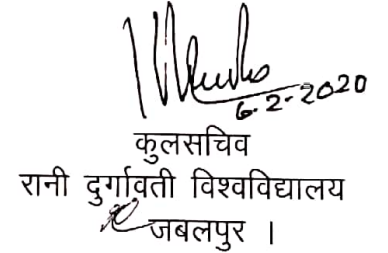 6-2-2020
कुलसचिव
रानी दुर्गावती विश्वविद्यालय
जबलपुर ।